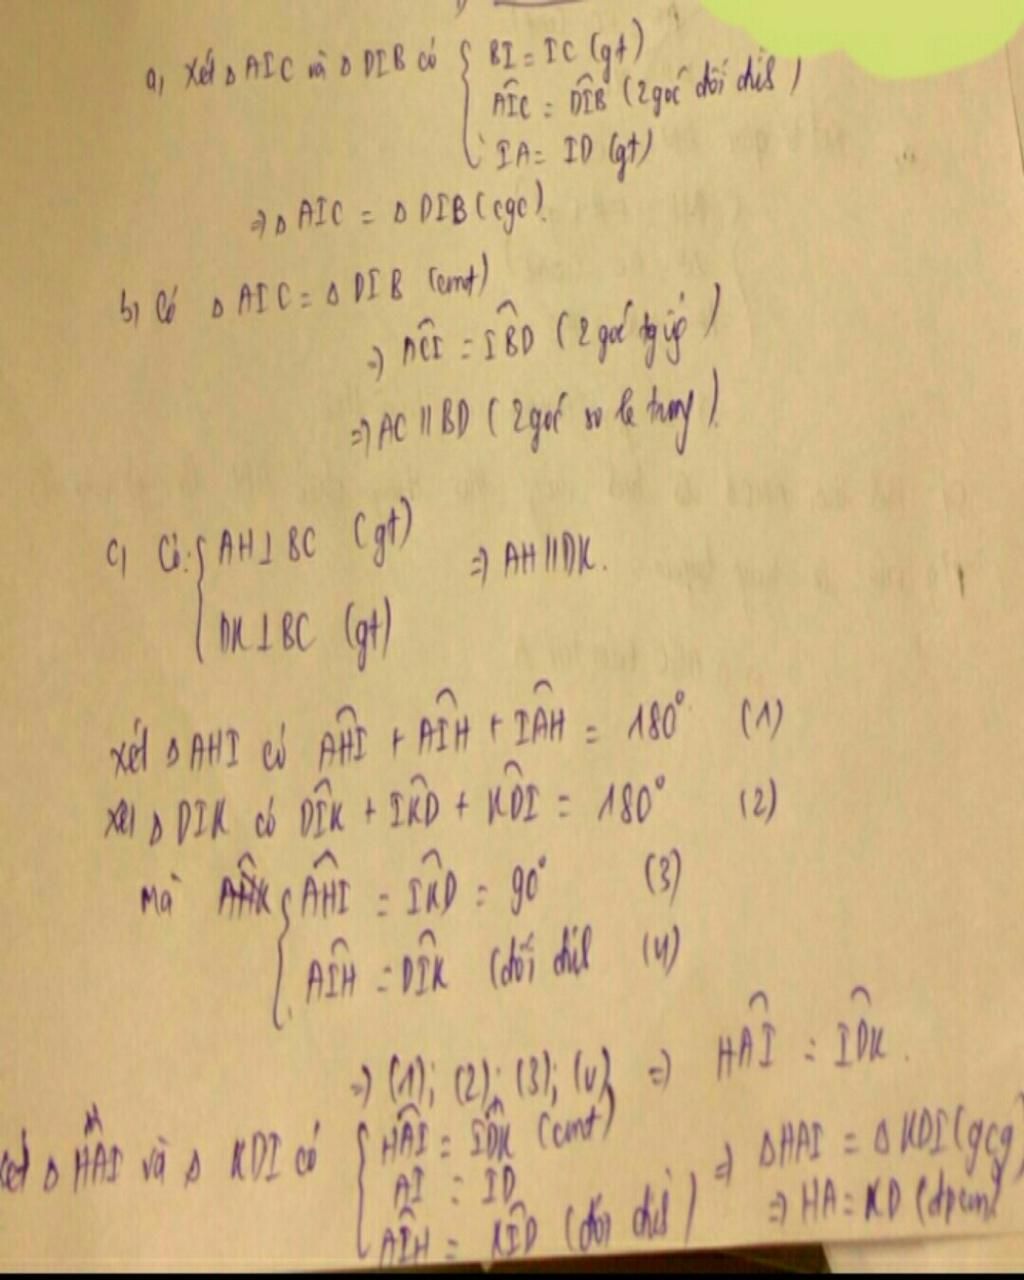 a, Xét Δ AIC và Δ DIB có { BI = IC (gt)
AIC^ = DIB^ (2 góc đối đỉnh)
IA = ID (gt)
=> Δ AIC = Δ DIB (cgc).
b, Có Δ AIC = Δ DIB (cmt)
=> ACI^ = IBD^ (2 góc tg ứg)
=> AC // BD (2 góc so le trong).
c, Có: { AH ⊥ BC (gt) => AH // DK.
DK ⊥ BC (gt)
Xét Δ AHI có AHI^ + AIH^ + IAH^ = 180° (1)
Xét Δ DIK có DIK^ + IKD^ + KDI^ = 180° (2)
Mà { AHI^ = IKD^ = 90° (3)
AIH^ = DIK^ (đối đỉnh (4)
=> (1); (2); (3); (4) => HAI^ = IDK^.
Xét Δ HAI và Δ KDI có { HAI^ = IDK^ (cmt) => Δ HAI = Δ KDI (gcg)
AI = ID => HA = KD (đpcm)
AIH^ = KID^ (đối đỉnh)